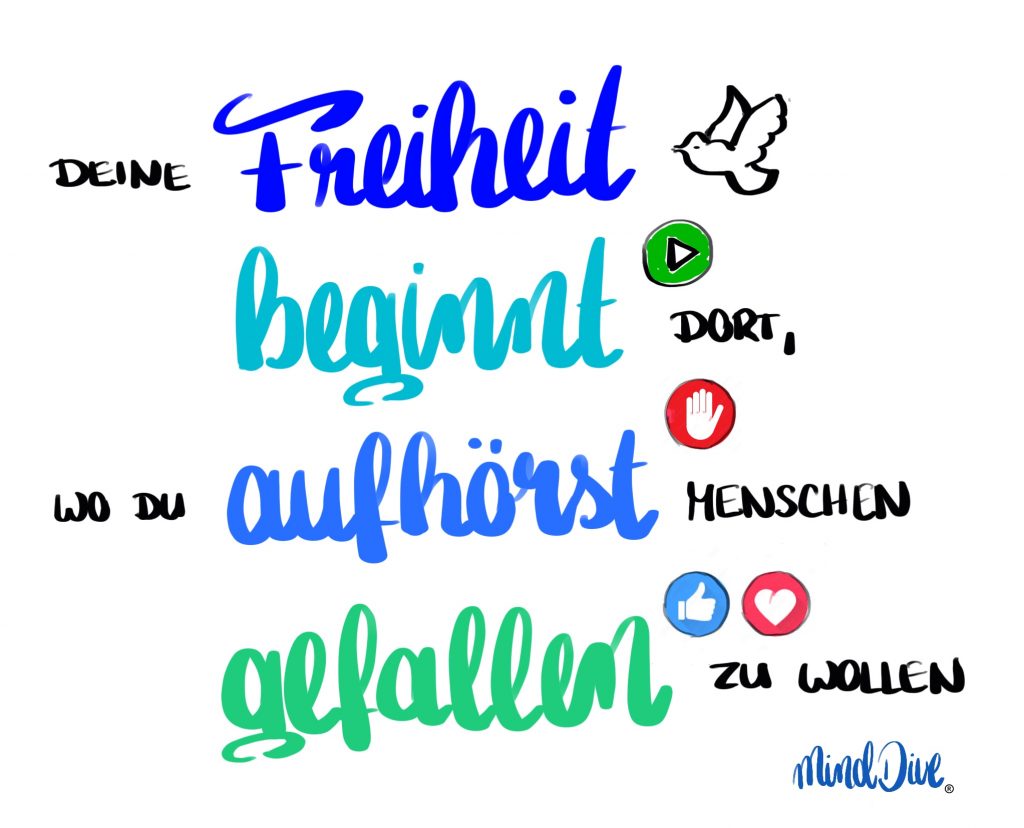 DEINE Freiheit
beginnt DORT,
WO DU aufhörst MENSCHEN
gefallen ZU WOLLEN
MindDive®